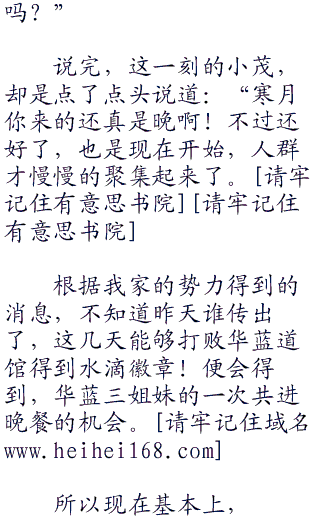 吗？”
说完，这一刻的小茂，
却是点了点头说道：“寒月
你来的还真是晚啊！不过还
好了，也是现在开始，人群
才慢慢的聚集起来了。[请牢
记住有意思书院][请牢记住
有意思书院]
根据我家的势力得到的
消息，不知道昨天谁传出
了，这几天能够打败华蓝道
馆得到水滴徽章！便会得
到，华蓝三姐妹的一次共进
晚餐的机会。[请牢记住域名
www.heihei168.com]
所以现在基本上，